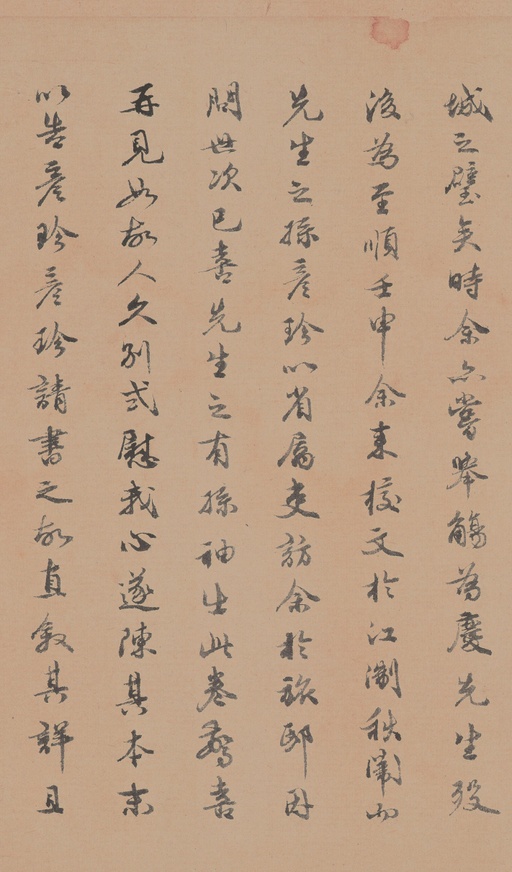 城之璧矣時余亦嘗舉觴為慶先生歿
後為至順壬申余来校文於江浙秋闈而
先生之孫彦珍以省屬吏訪余於旅邸因
問世次已喜先生之有孫袖出此卷驚喜
再見如故人久别式慰我心遂陳其本末
以告彦珍彦珍請書之故直叙其詳且